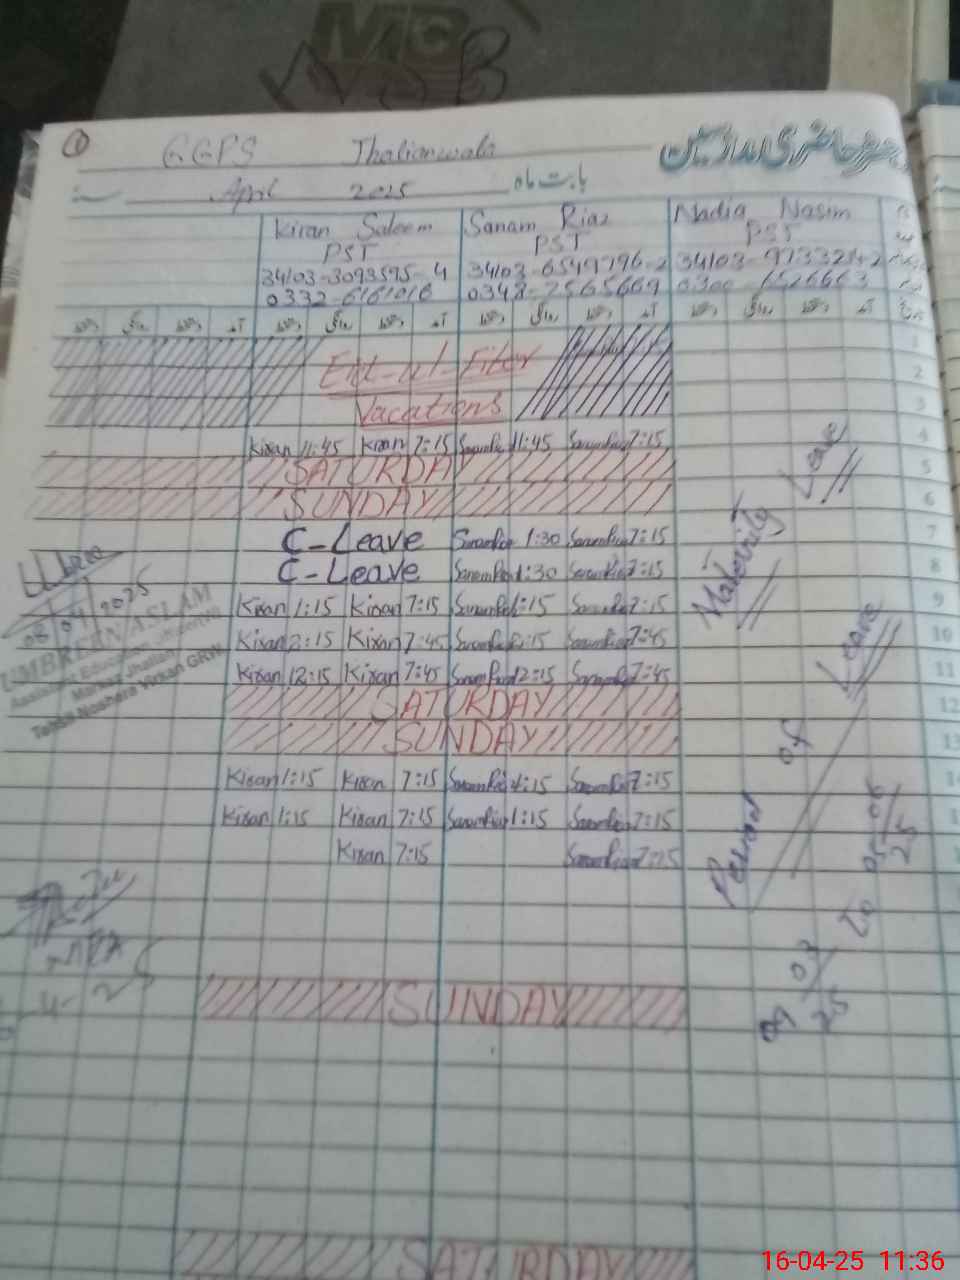 1
GGPS Thalianwala
April 2025 بابت ماہ
Kiran Saleem Sanam Riaz Nadia Nasim
PST PST PST
34103-3093595-4 34103-6549796-2
0332-6161016 0348-7565669 0300-6526663
1
Eid-ul-Fiter
2
Vacations
3
Kiran 11:45 Kiran 7:15 SanamRiaz 11:45 SanamRiaz 7:15
4
SATURDAY
5
SUNDAY
6
C-Leave SanamRiaz 1:30 SanamRiaz 7:15
7
C-Leave SanamRiaz 1:30 SanamRiaz 7:15
8
Kiran 1:15 Kiran 7:15 SanamRiaz 1:15 SanamRiaz 7:15
9
Kiran 2:15 Kiran 7:45 SanamRiaz 2:15 SanamRiaz 7:45
10
Kiran 12:15 Kiran 7:45 SanamRiaz 12:15 SanamRiaz 7:45
11
SATURDAY
12
SUNDAY
13
Kiran 1:15 Kiran 7:15 SanamRiaz 7:15
Kiran 1:15 Kiran 7:15 SanamRiaz 1:15 SanamRiaz 7:15
Kiran 7:15 SanamRiaz 7:15
SUNDAY
SATURDAY
Maternity Leave
Period of Leave
09/03/25 To 05/06/25
08/04/2025
UMBREEN ASLAM
Assistant Education Officer(W)
Markaz Jhallan
Tehsil Noshera Virkan GRW
16-04-25 11:36